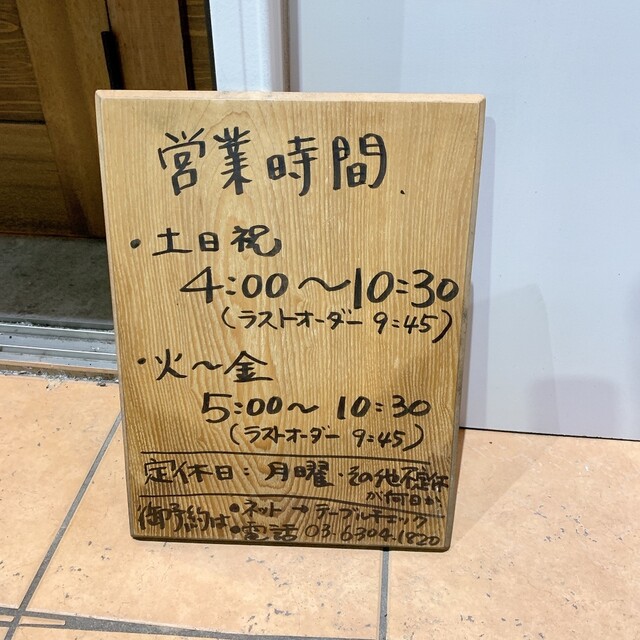 営業時間
・土日祝
4:00〜10:30
(ラストオーダー 9:45)
・火〜金
5:00〜10:30
(ラストオーダー 9:45)
定休日: 月曜・その他
が何日か
御予約は・ネット→テーブルチェック
・電話 03-6304-1820